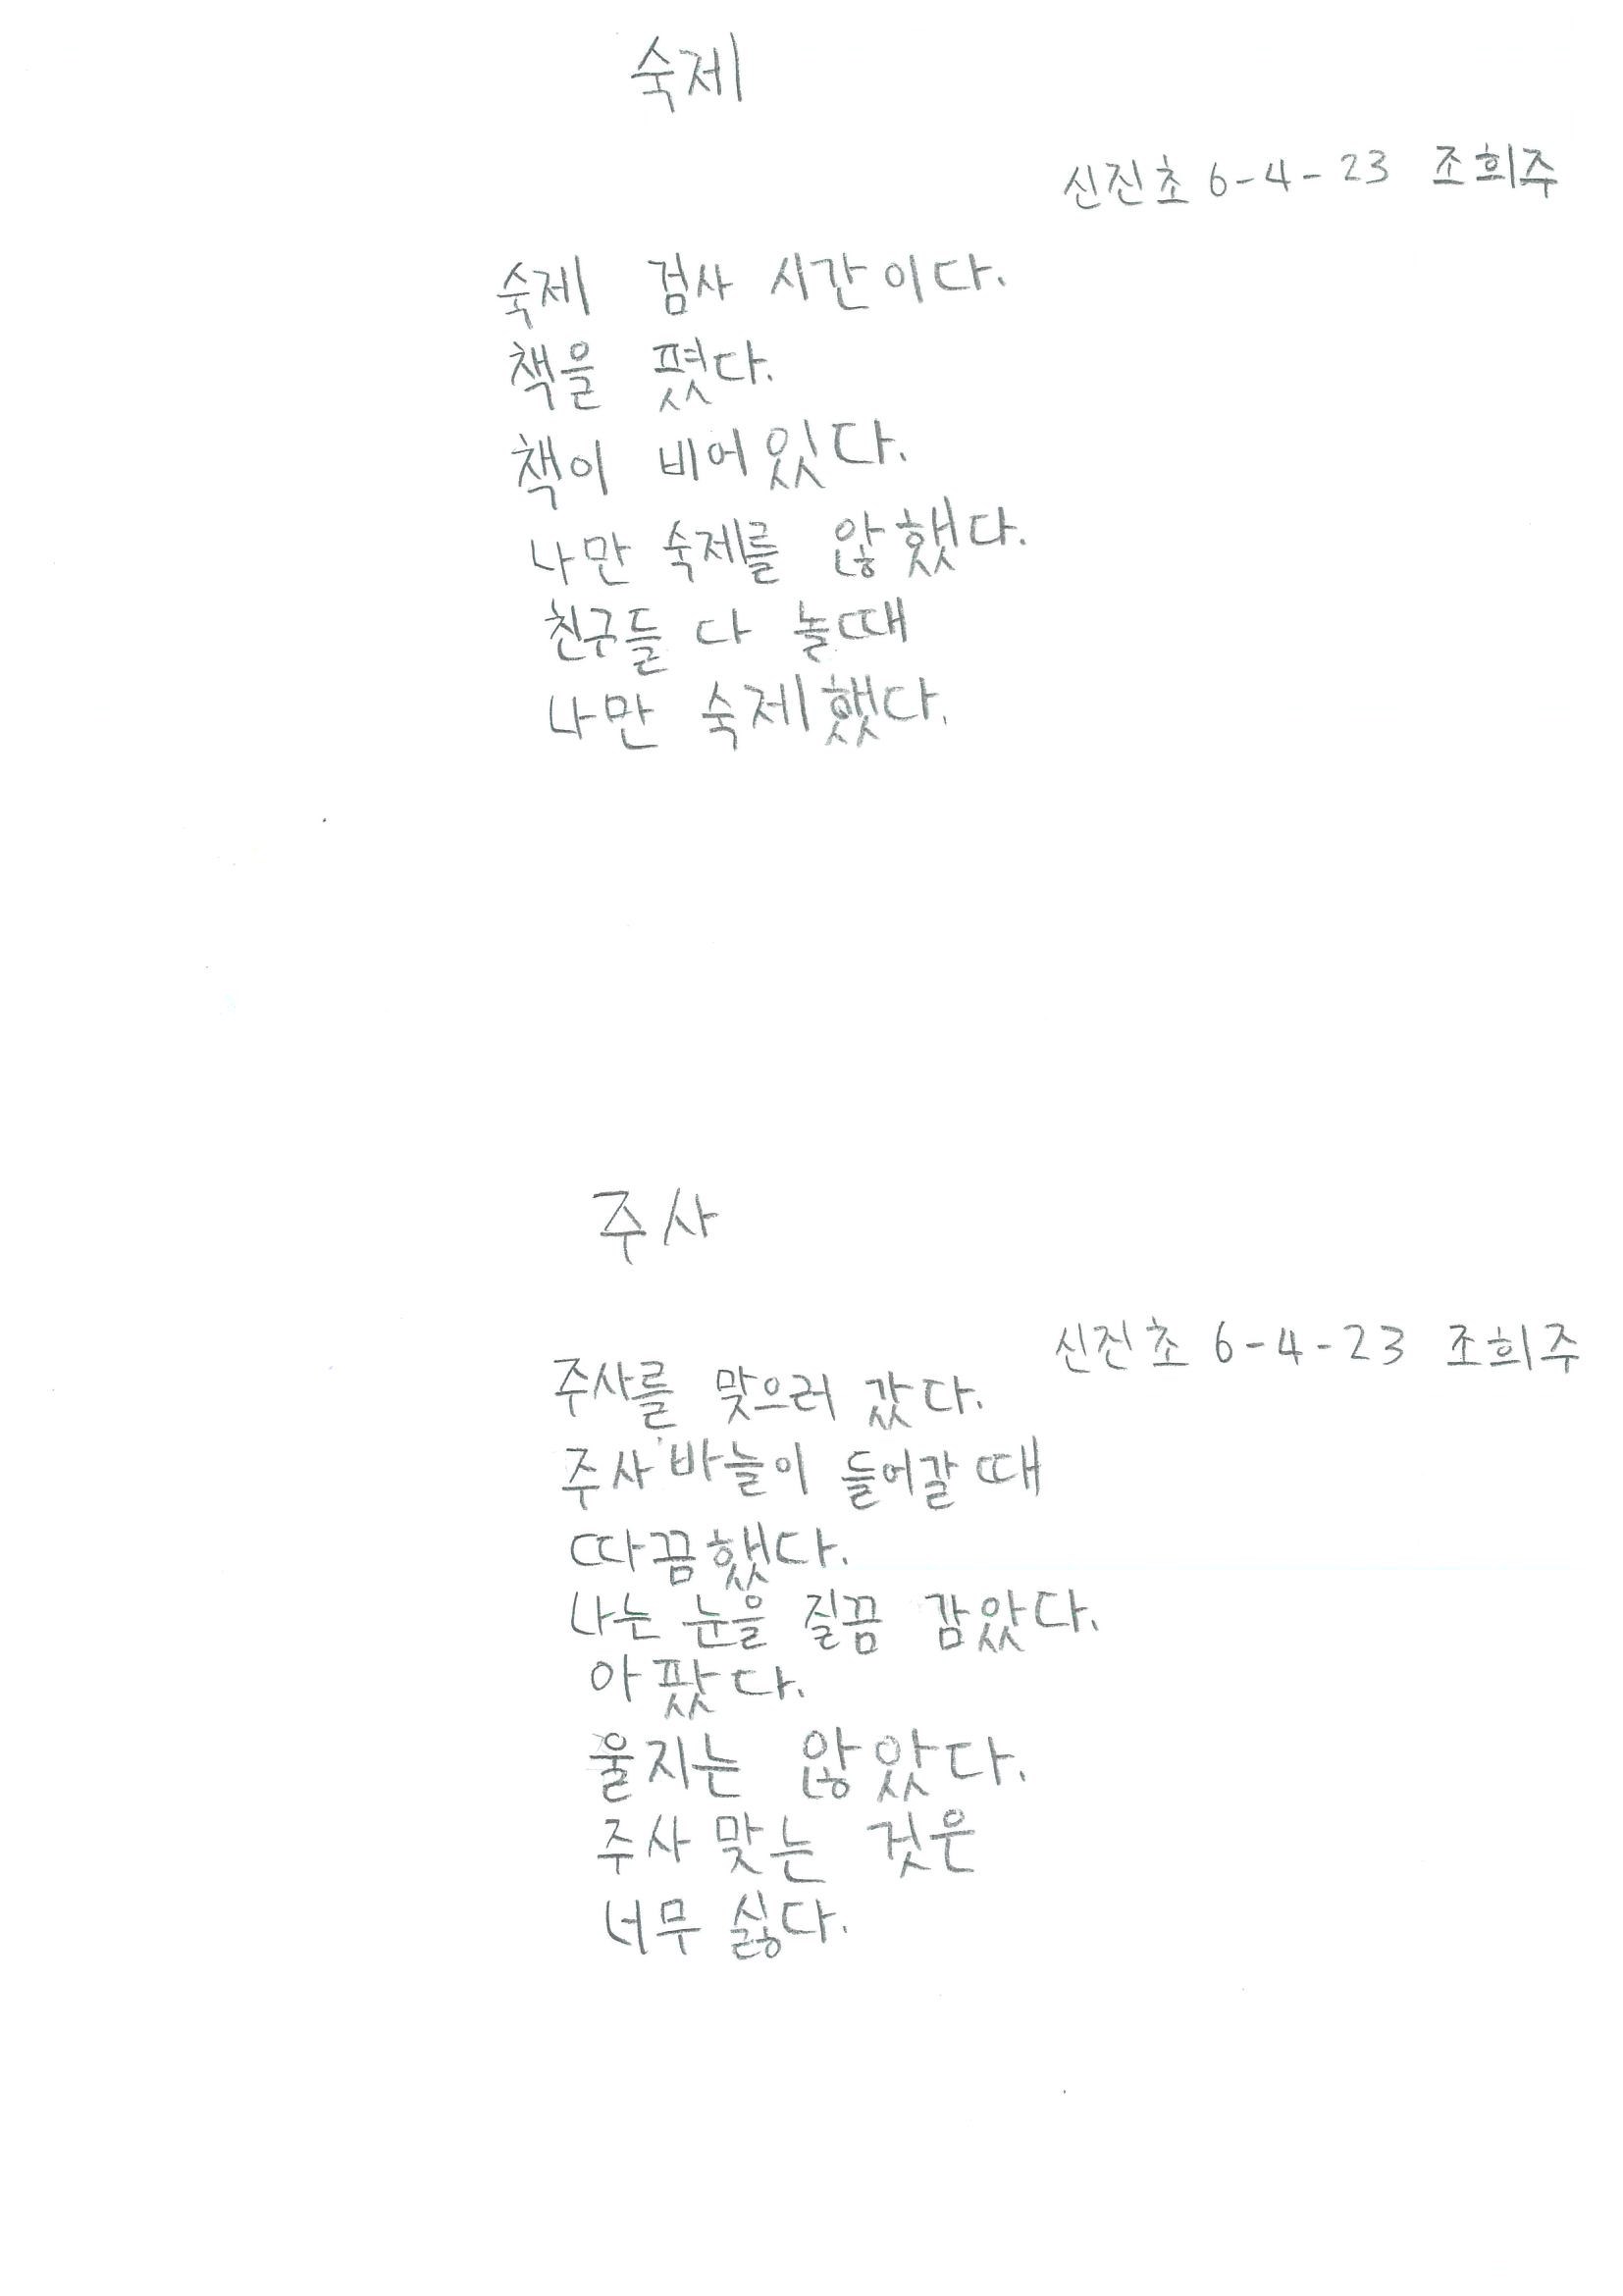 숙제
신진초 6-4-23 조희주
숙제 검사 시간이다.
책을 폈다.
책이 비어있다.
나만 숙제를 않했다.
친구들 다 놀때
나만 숙제했다.
주사
신진초 6-4-23 조희주
주사를 맞으러 갔다.
주사 바늘이 들어갈 때
따끔했다.
나는 눈을 질끔 감았다.
아팠다.
울지는 않았다.
주사 맞는 것은
너무 싫다.